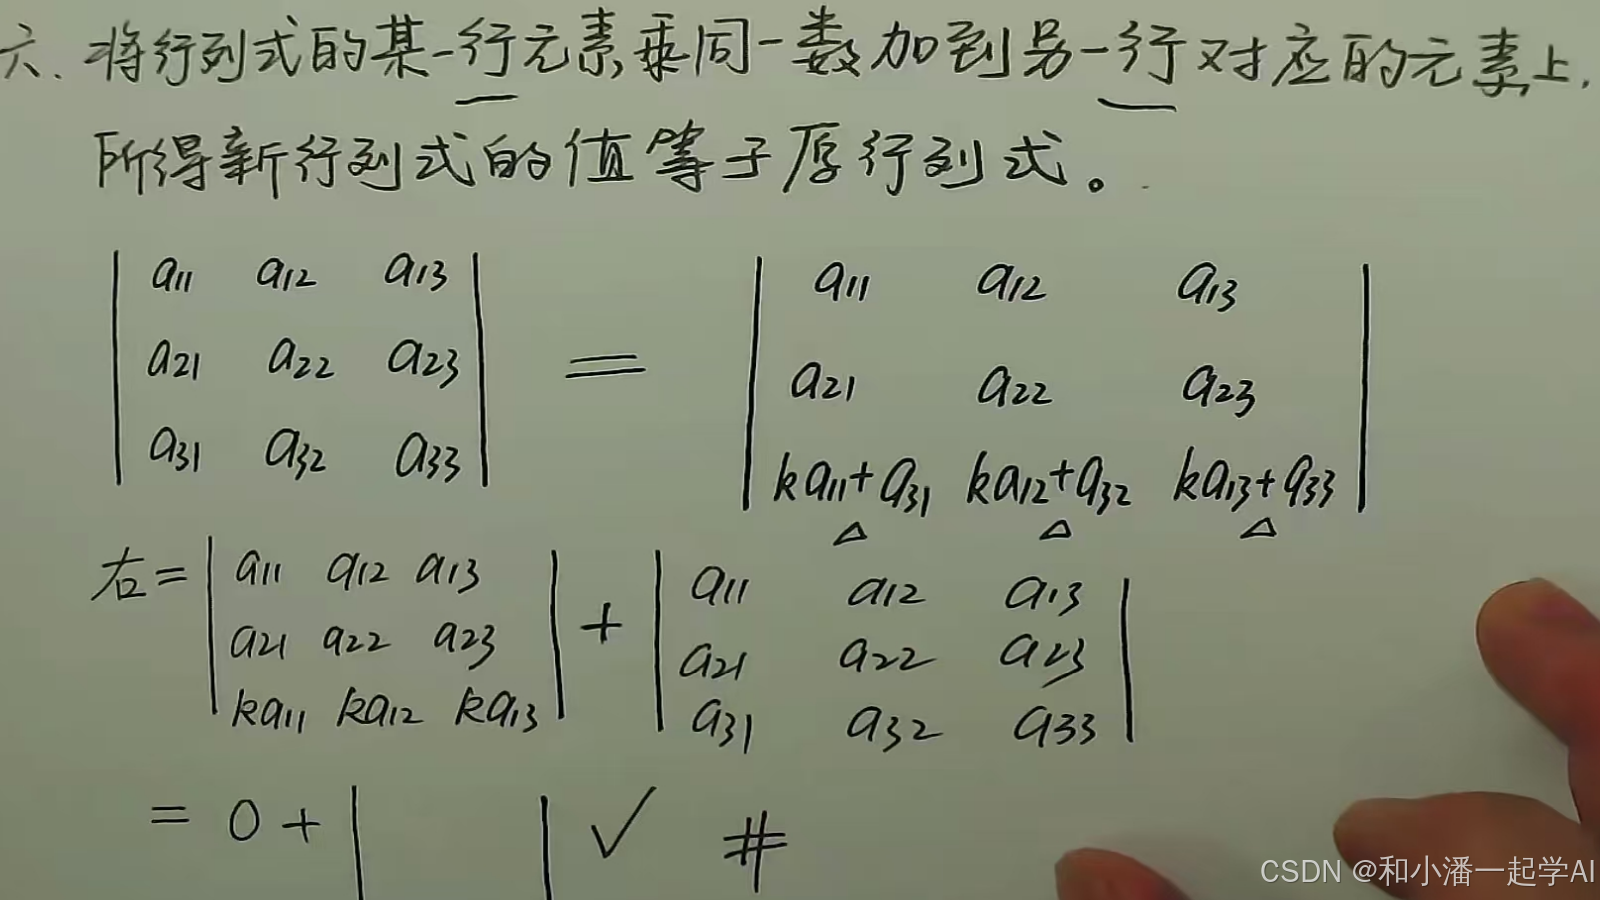 六、将行列式的某一行元素乘同一数加到另一行对应的元素上,
所得新行列式的值等于原行列式。
| a11 a12 a13 | = | a11 a12 a13 |
| a21 a22 a23 | | a21 a22 a23 |
| a31 a32 a33 | | ka11+a31 ka12+a32 ka13+a33 |
△ △ △
右= | a11 a12 a13 | + | a11 a12 a13 |
| a21 a22 a23 | | a21 a22 a23 |
| ka11 ka12 ka13 | | a31 a32 a33 |
= 0 + | | ✓ #
CSDN @和小潘一起学AI